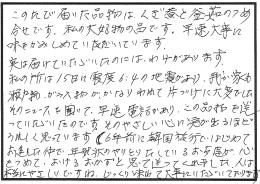 このたび届いた品物はくぎ煮と釜茹のつめ
合せです。私の大好物の品です。早速大事に
味をかみしめていただいています。
実は届けていただいたのには、わけがあります。
私の所は15日に震度6.4の地震があり、我が家も
瀬戸物、ガラス物が、かなりわれて片づけに大変でした。
そのニュースを聞いて、早速電話があり、この品物を送っ
ていただいたのです。そのやさしい心に涙が出るほど
うれしく思っています。(6年前に韓国旅行ではじめて
お逢した仲で、年賀状のやりとりしているお友達が心
をこめて、おけるおかずと思って送ってくれました。人は
本当にやさしいですね。じっくり味わって大事にいただいております)